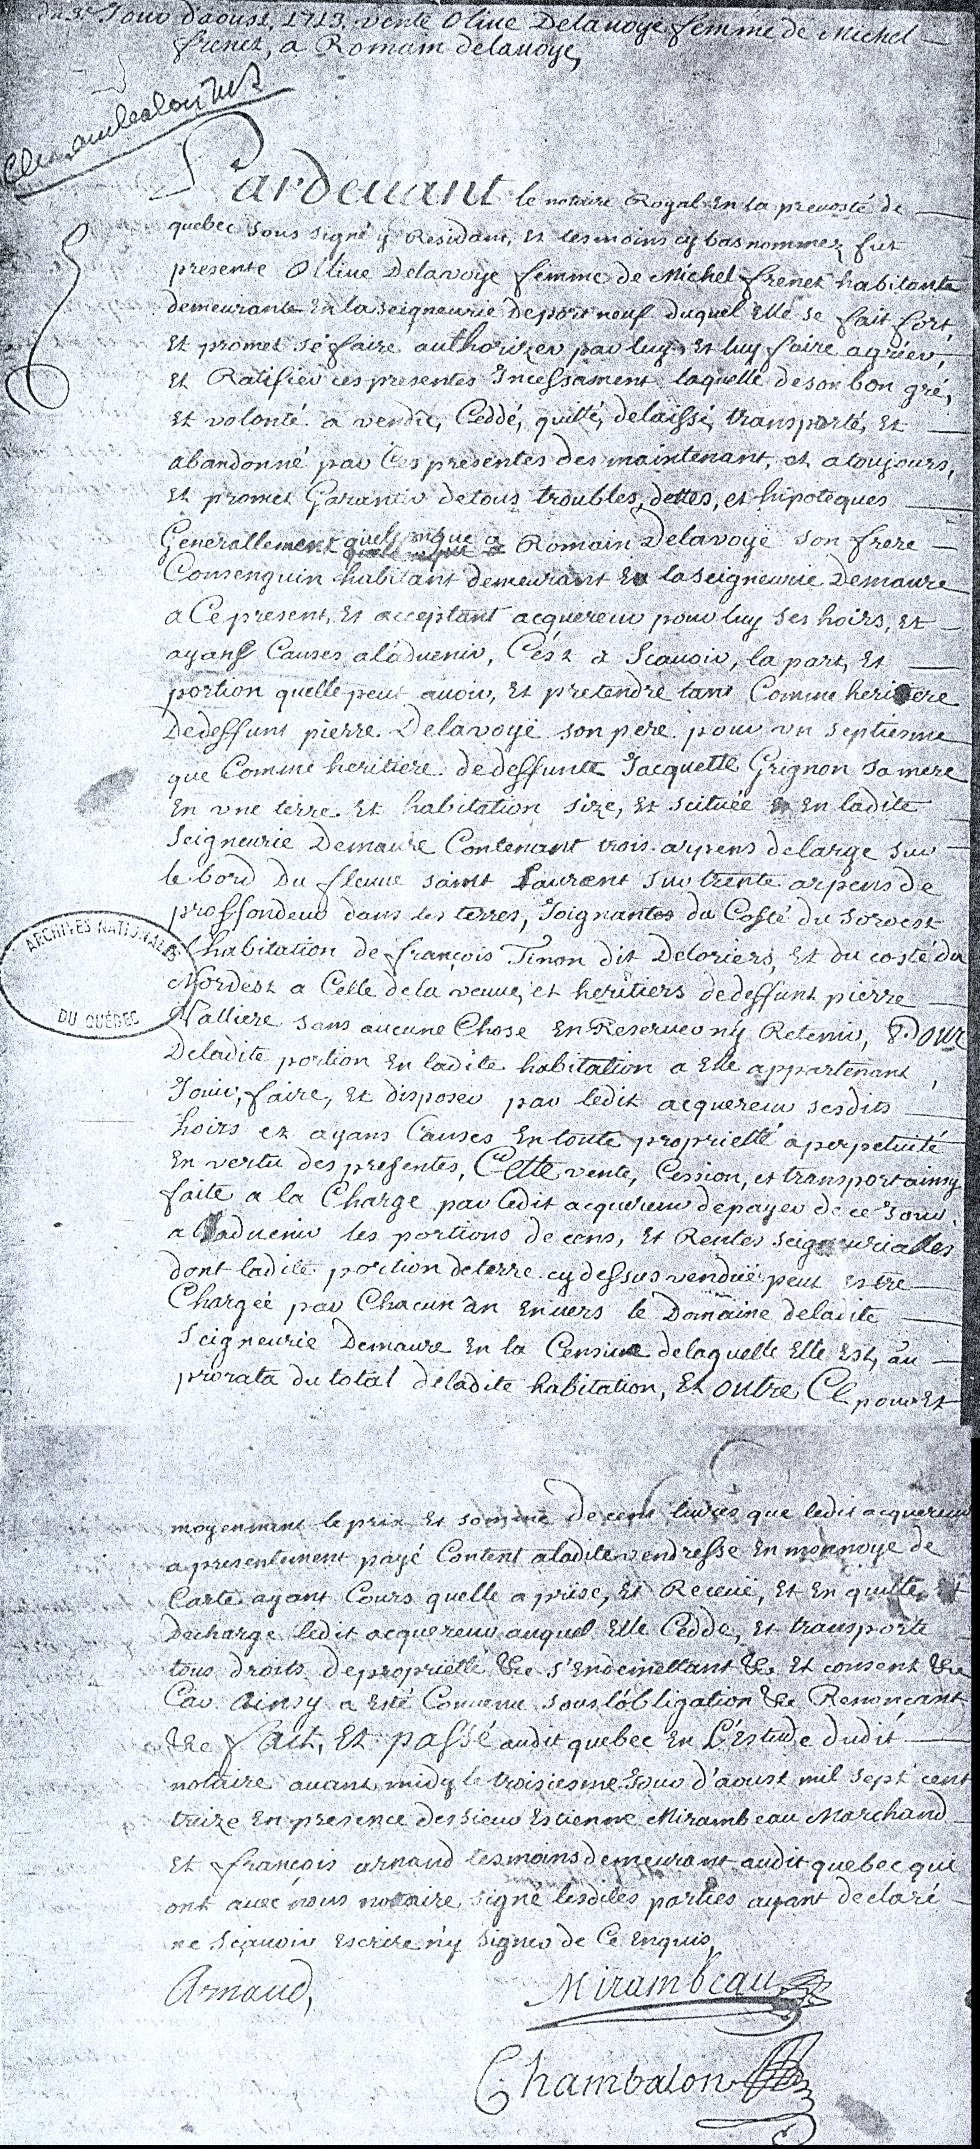 du 3e Jour d'aoust 1713. vente Olive Delavoye femme de Michel
frenet, a Romain delavoye,
Chambalon Nre
Pardevant le notaire Royal En la prevosté de
quebec sous signé y Residant, Et tesmoins cy bas nommez fut
presente Ollive Delavoye femme de Michel frenet habitante
demeurante En la seigneurie de portneuf duquel Elle se fait fort
Et promet se faire authorizer par luy, Et luy faire agréer,
Et Ratifier ces presentes Incessament laquelle de son bon gré,
Et volonté a vendu, Ceddé, quitté, delaissé, transporté, Et
abandonné par Ces presentes des maintenant, et a toujours,
Et promet Garantir de tous troubles, dettes, et hipoteques
Generallement quelconque a Romain Delavoye son frere
Consenguin habitant demeurant En la seigneurie Demaure
a Ce present, Et acceptant acquereur pour luy ses hoirs, Et
ayans Causes a l'advenir, C'est a Scavoir, la part, Et
portion quelle peut avoir, Et pretendre tant Comme heritiere
De deffunt pierre Delavoye son pere pour un septiesme
que Comme heritiere de deffunte Jacquette Grignon sa mere
En une terre Et habitation size, Et scituée En ladite
Seigneurie Demaure Contenant trois arpens de large sur
le bord Du fleuve saint Laurent sur trente arpens de
proffondeur dans les terres, Joignantes du Costé du sorouest
l'habitation de françois Tinon dit Deloriers, Et du costé du
Nordest a Celle de la veuve, et heritiers de deffunt pierre
Valliere sans aucune Chose En Reserver ny Retenir, Pour
De ladite portion En ladite habitation a Elle appartenant
Jouir, faire, Et disposer par ledit acquereur sesdits
hoirs et ayans Causes En toute proprietté a perpetuité
En vertu des presentes, Cette vente, Cession, et transport ainsy
faite a la Charge par ledit acquereur de payer de ce Jour
a l'advenir les portions de cens, Et Rentes seigneurialles
dont ladite portion de terre cy dessus vendüe peut estre
Chargée par Chacun an Envers le Domaine de ladite
Seigneurie Demaure En la Censive de laquelle Elle Est, au
prorata du total de ladite habitation, Et outre Ce pour Et
moyennant le prix Et somme De cent livres que ledit acquereur
a presentement payé Content a ladite vendresse En monnoye de
Carte ayant Cours quelle a prise, Et Receüe, Et En quitte, Et
Decharge ledit acquereur auquel Elle Cedde, Et transporte
tous droits de proprietté &c s'En demettant &c Et consent &c
Car Ainsy a esté Convenu sous l'obligation &c Renoncant
&c fait, Et passé audit quebec En L'Estude dudit
notaire avant midy le troisiesme Jour d'aoust mil sept cent
treize En presence des sieur Estienne Mirambeau Marchand
Et françois arnaud tesmoins demeurant audit quebec qui
ont avec nous notaire signé lesdites parties ayant declaré
ne Sçavoir Escrire ny signer de Ce Enquis,
Arnaud,
Mirambeau
Chambalon
ARCHIVES NATIONALES
DU QUÉBEC